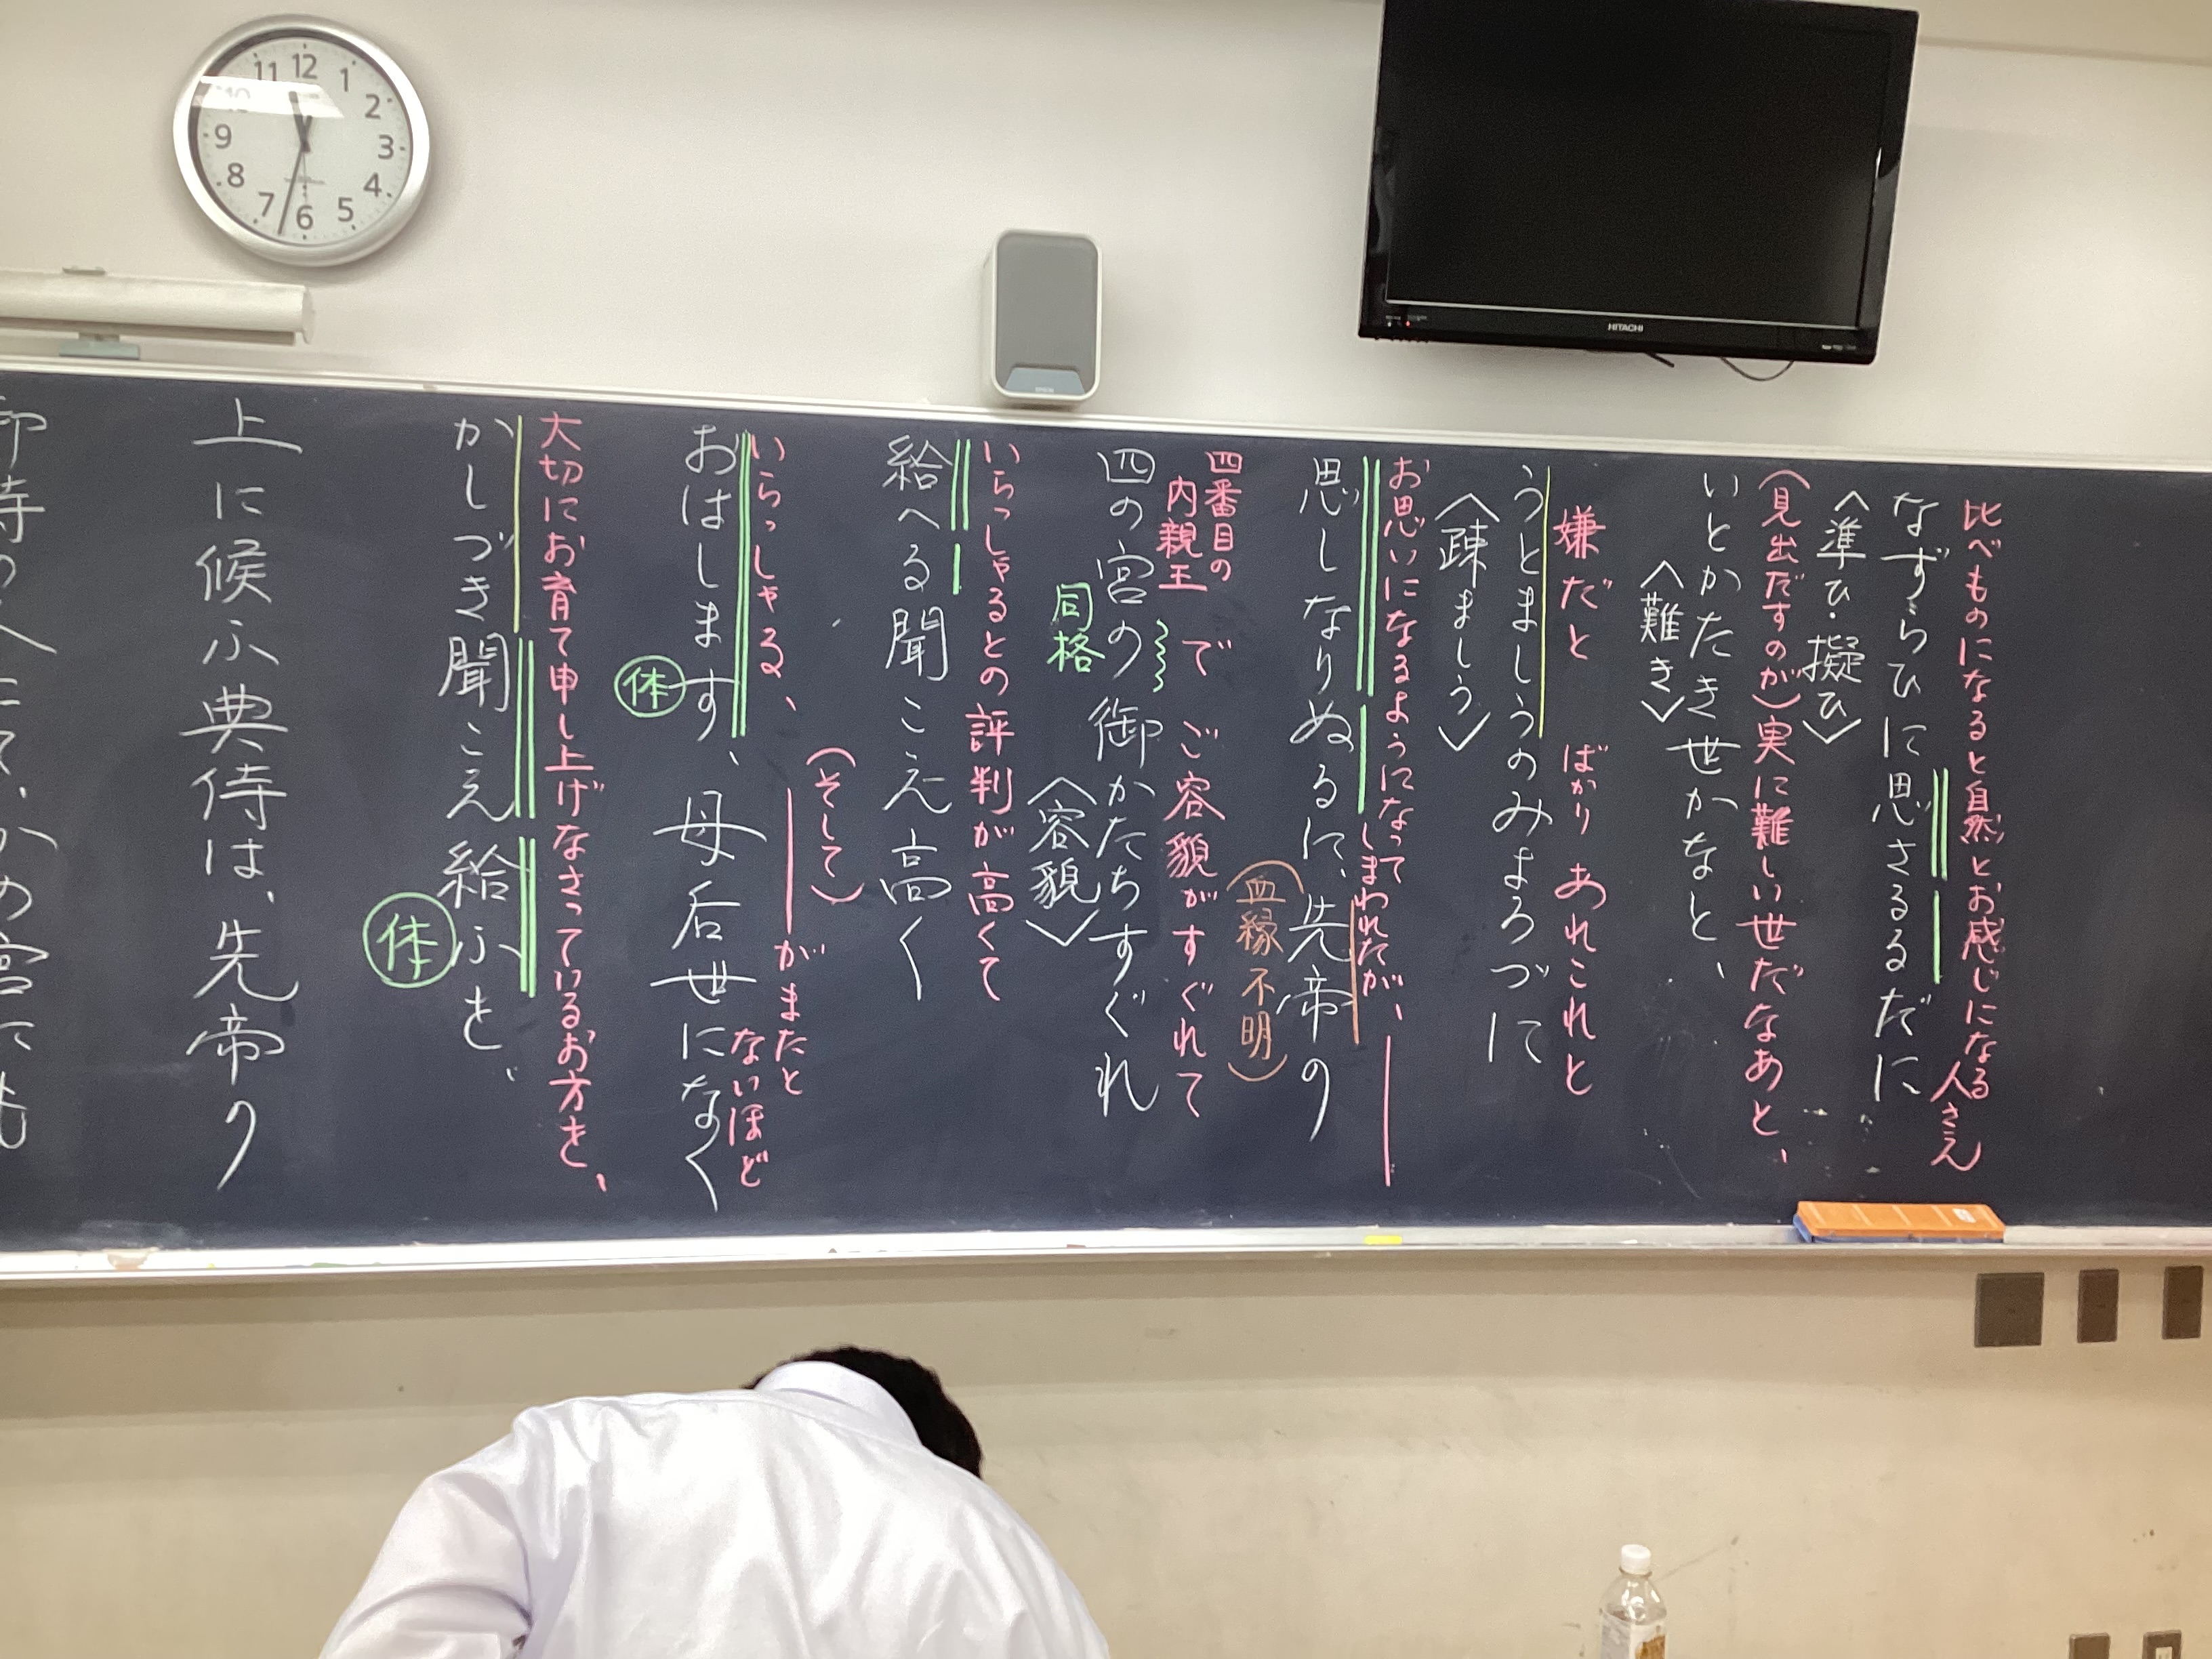 比べものになると自然とお感じになる
人さえ
なずらひに思さるるだに
〈準ひ・擬ひ〉
(見出だすのが)実に難しい世だなあと、
いとかたき世かなと、
〈難き〉
嫌だと ばかり あれこれと
うとましうのみよろづに
〈疎ましう〉
お思いになるようになって
しまわれたが、
思しなりぬるに、先帝の
(血縁不明)
四番目の
内親王 で ご容貌がすぐれて
四の宮の御かたちすぐれ
同格
〈容貌〉
いらっしゃるとの評判が高くて
給へる聞こえ高く
(そして)
いらっしゃる、 がまたと
ないほど
おはします、母后世になく
体
大切にお育て申し上げなさっているお方を、
かしづき聞こえ給ふを、
体
上に候ふ典侍は、先帝の
12
1
2
3
4
5
6
7
8
9
10
11
HITACHI
EPSON